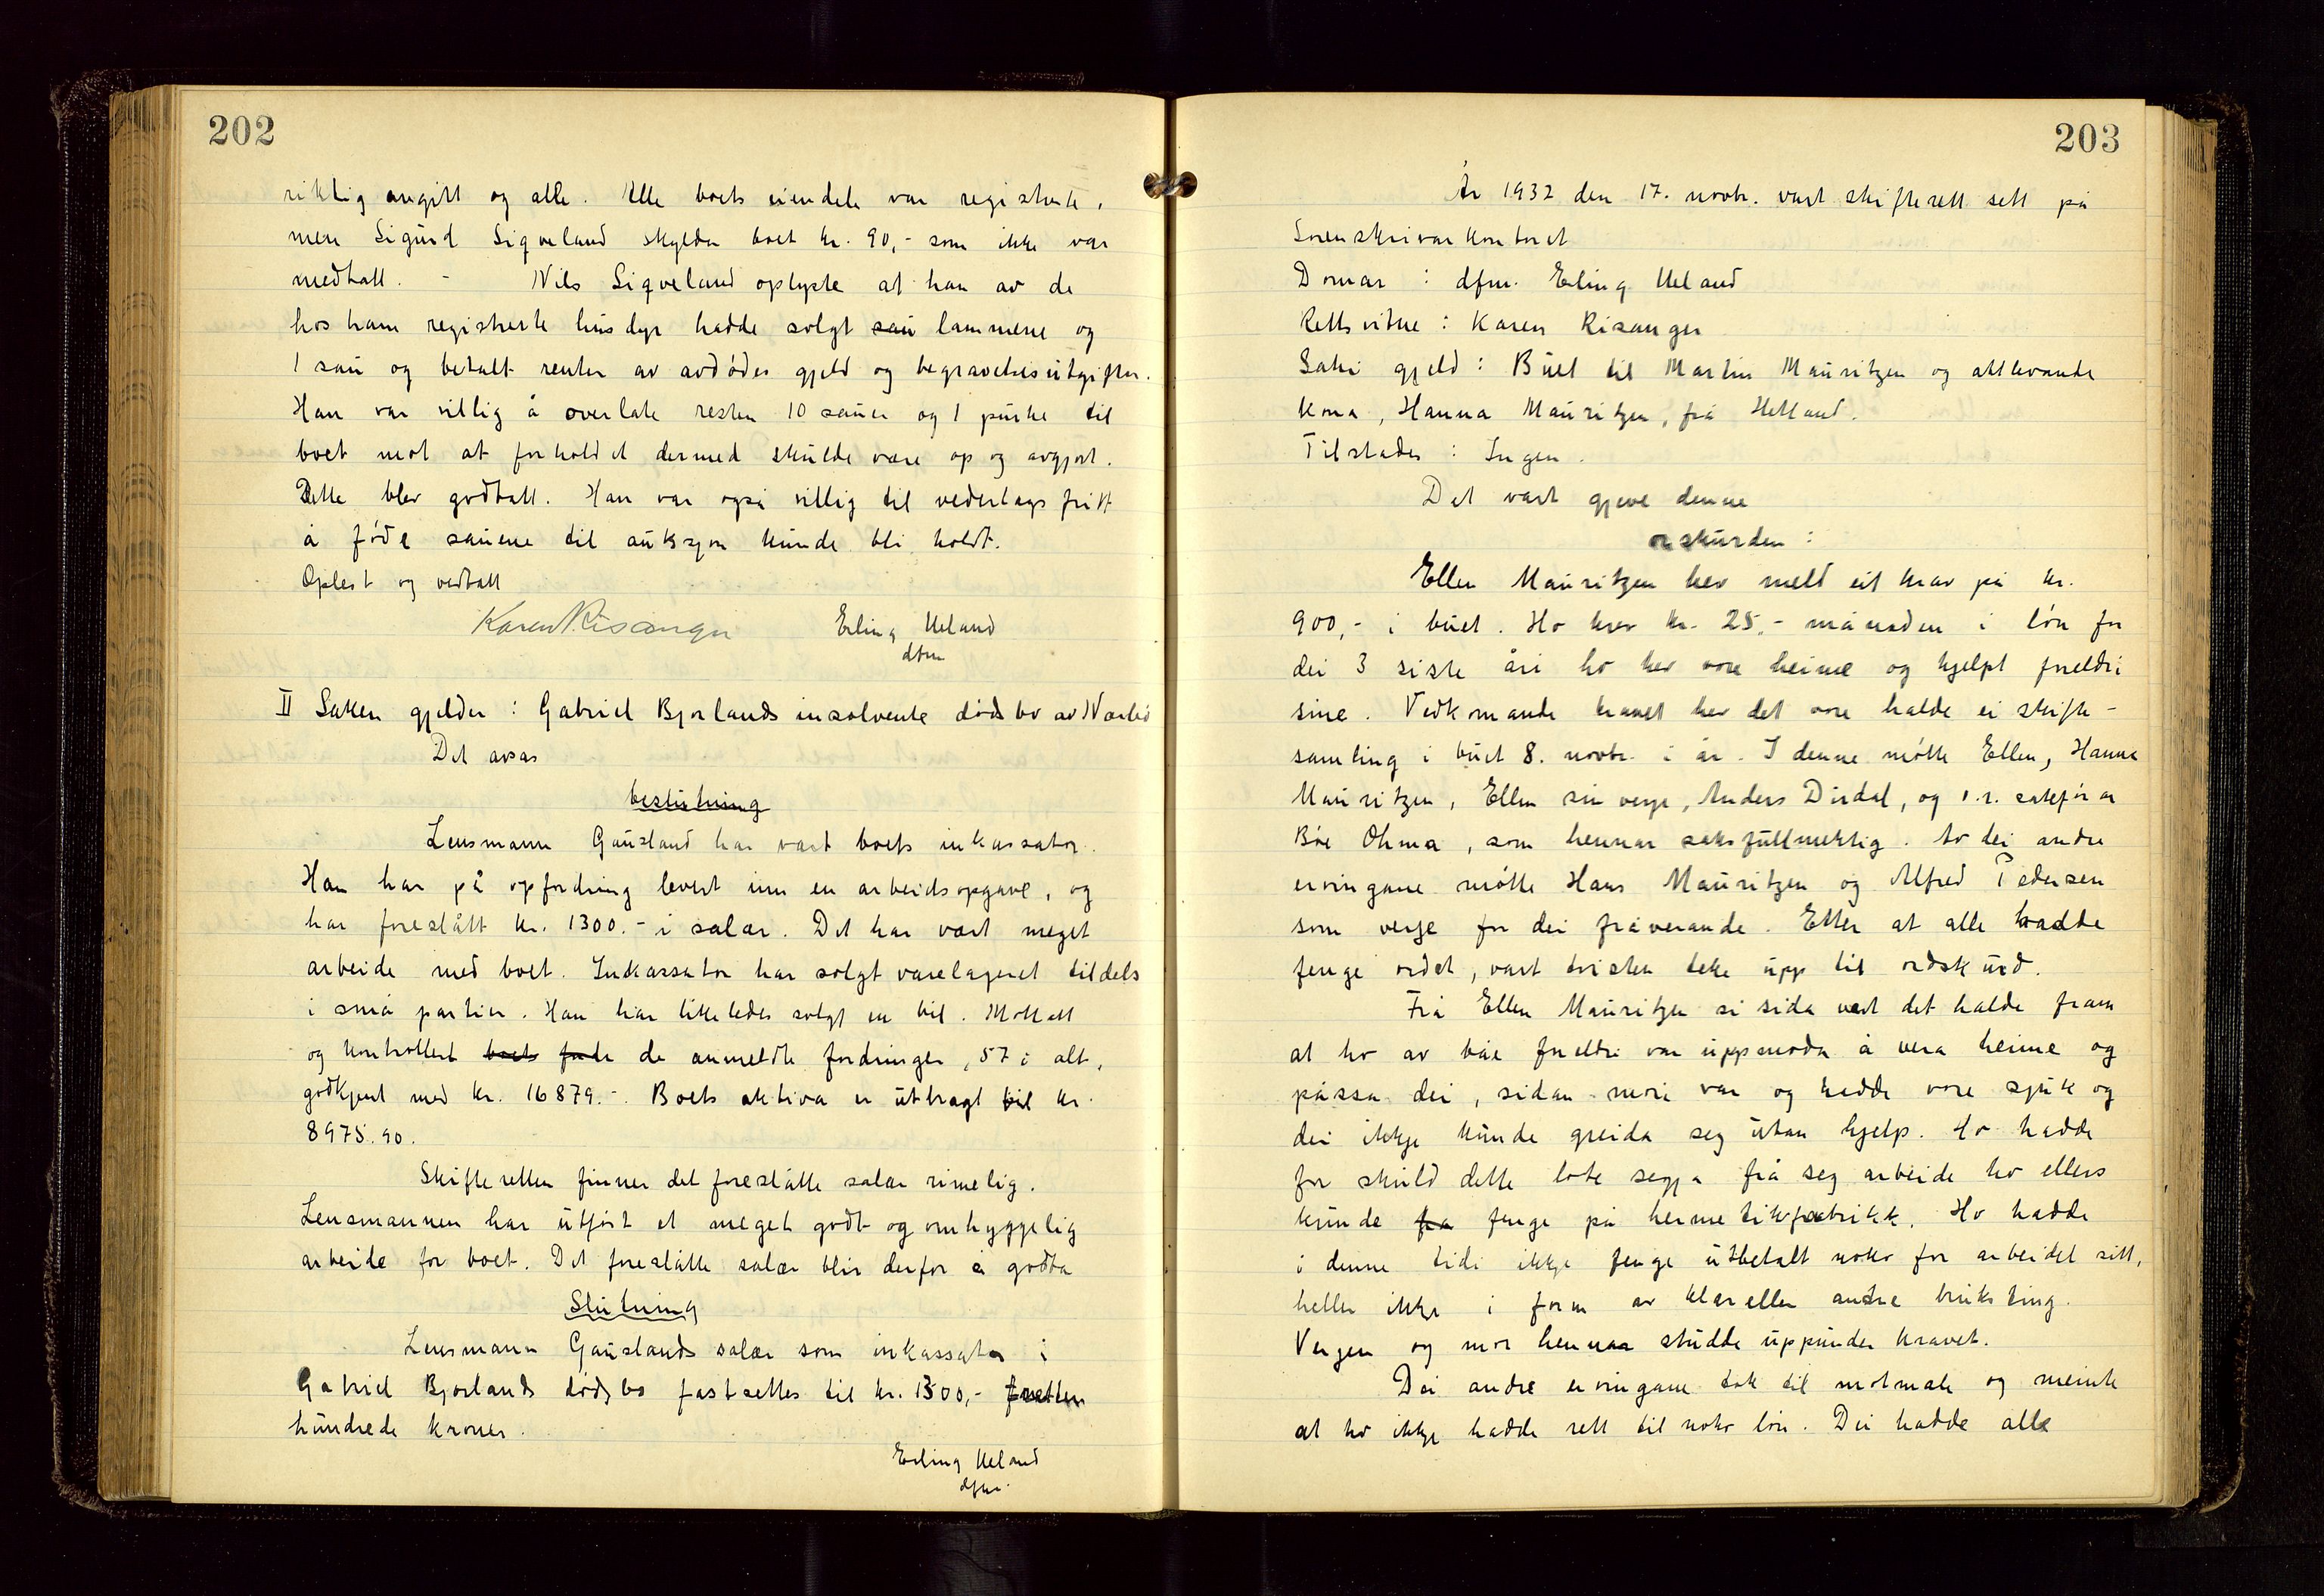 202
riktig angitt og alle. Alle boets eiendele var registrerte,
men Sigurd Sigveland skylder boet kr. 90,- som ikke var
medtatt. - Nils Sigveland oplyste at han av de
hos ham registrerte husdyr hadde solgt sau lammene og
1 sau og betalt renter av avdødes gjeld og begravelsesutgifter.
Han var villig å overlate resten 10 sauer og 1 purke til
boet mot at forholdet dermed skulde være op og avgjort.
Dette blev godtatt. Han var også villig til vederlagsfritt
å føde sauene til auksjon kunde bli holdt.
Oplest og vedtatt
Karen Risanger Erling Ueland
dfm
II Saken gjelder : Gabriel Bjorlands insolvente dødsbo av Nærbø
Det avsas
beslutning
Lensmann Gausland har vært boets inkassator.
Han har på opfordring levert inn en arbeidsopgave, og
har foreslått kr. 1300.- i salær. Det har vært meget
arbeide med boet. Inkassator har solgt varelageret tildels
i små partier. Han har likeledes solgt en bil. Mottatt
og kontrollert boets de anmeldte fordringer, 57 i alt,
godkjent med kr. 16879.-. Boets aktiva er utbragt til kr.
8975.90.
Skifteretten finner det foreslåtte salær rimelig.
Lensmannen har utført et meget godt og omhyggelig
arbeide for boet. Det foreslåtte salær blir derfor å godta
Slutning
Lensmann Gauslands salær som inkassator i
Gabriel Bjorlands dødsbo fastsettes til kr. 1300,- tretten
hundrede kroner.
Erling Ueland
dfm.
203
År 1932 den 17. novbr. vart skifterett sett på
Sorenskrivarkontoret
Domar : dfm. Erling Ueland
Rettsvitne : Karen Risanger
Saki gjeld : Buet til Martin Mauritzen og attlevande
kona, Hanna Mauritzen, frå Hetland.
Tilstades : Ingen.
Det vart gjeve denne
orskurden :
Ellen Mauritzen hev meld eit krav på kr.
900,- i buet. Ho krev kr. 25,- månaden i løn for
dei 3 siste åri ho hev vore heime og hjelpt foreldri
sine. Vedkomande kravet hev det vore halde ei skifte-
samling i buet 8. novbr. i år. I denne møtte Ellen, Hanna
Mauritzen, Ellen sin verje, Anders Dirdal, og o.r. sakførar
Bøe Ohma, som hennar saksfullmektig. Av dei andre
ervingane møtte Hans Mauritzen og Alfred Pedersen
som verje for dei fråverande. Etter at alle hadde
fenge ordet, vart tvisten teke upp til ordskurd.
Frå Ellen Mauritzen si sida vart det halde fram
at ho av båe foreldri var uppmoda å vera heime og
passa dei, sidan mori var og hadde vore sjuk og
dei ikkje kunde greida seg utan hjelp. Ho hadde
for skuld dette lote segja frå seg arbeide ho ellers
kunde fra fenge på hermetikkfabrikk. Ho hadde
i denne tidi ikkje fenge utbetalt noko for arbeidet sitt,
heller ikkje i form av klær eller andre brukting.
Verjen og mor hennar studde uppunder kravet.
Dei andre ervingane tok til motmæle og meinte
at ho ikkje hadde rett til noko løn. Dei hadde alle